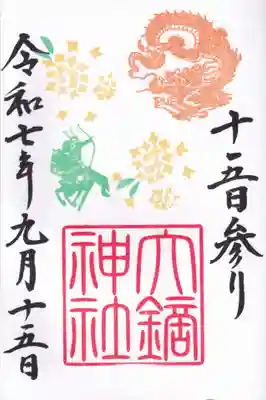 十五日参り
六鏑神社
令和七年九月十五日